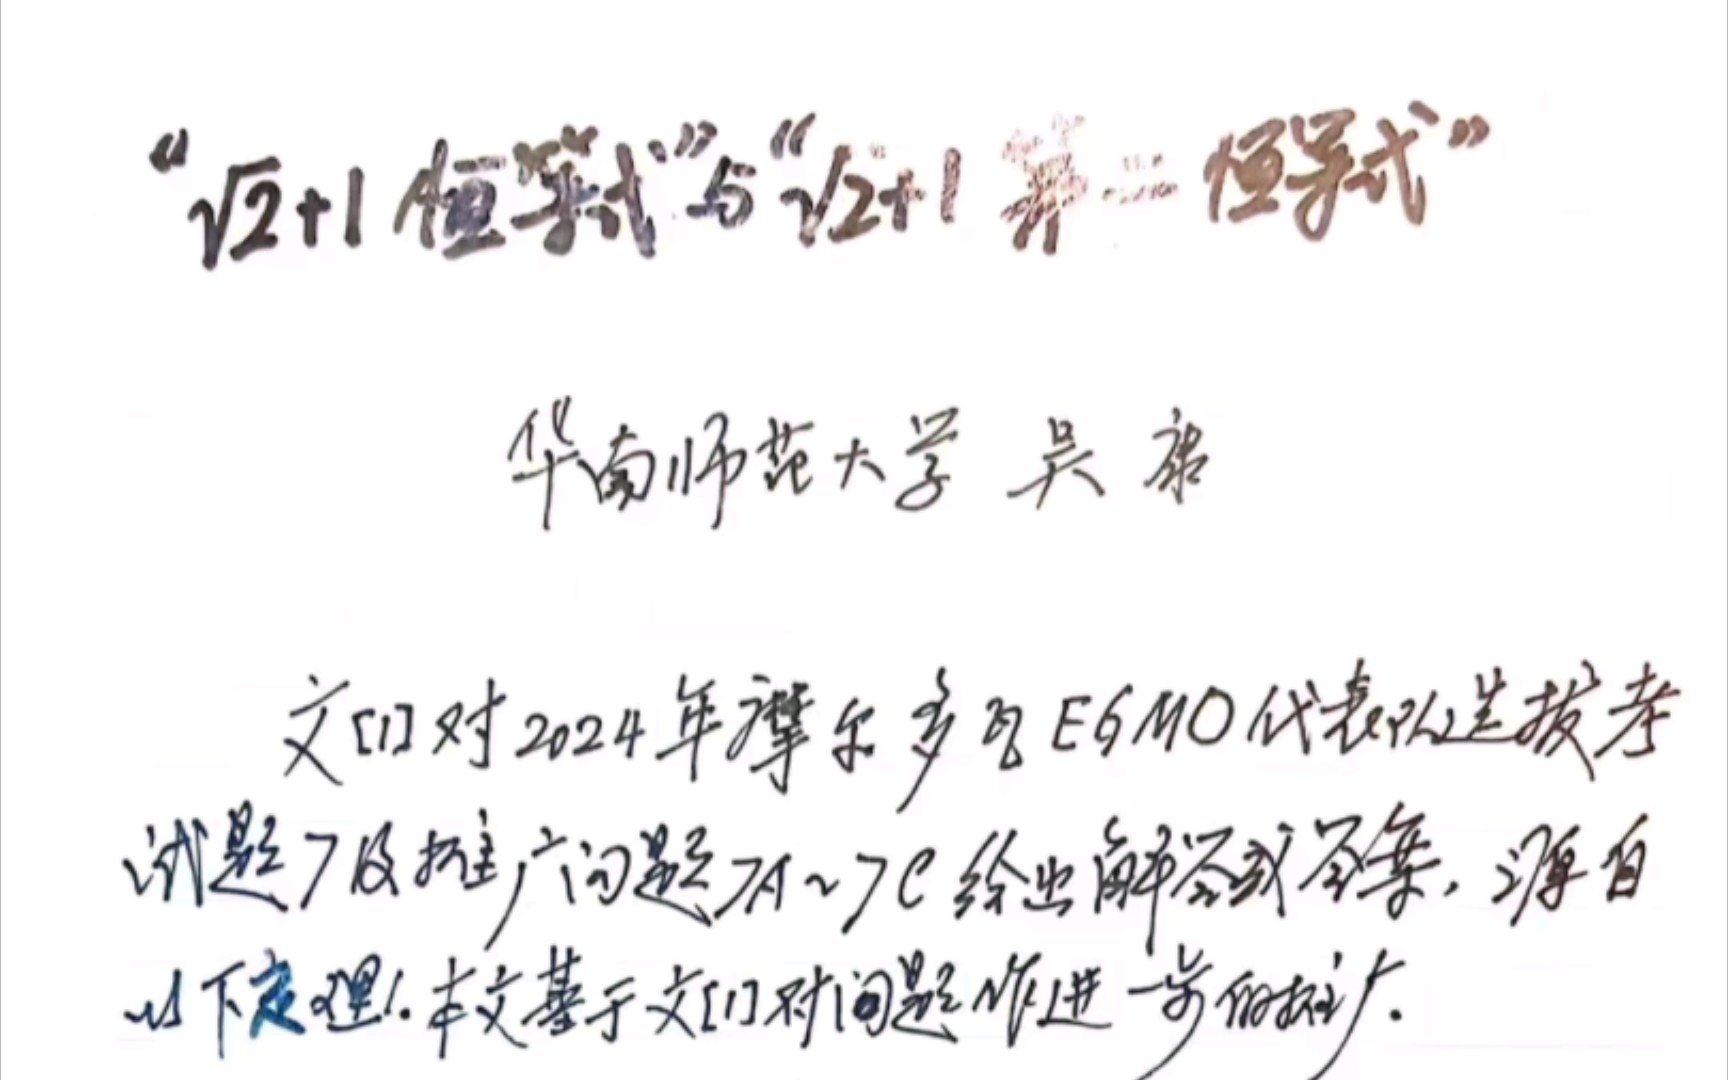 “√2+1 恒等式”与“√2+1 第二恒等式”
华南师范大学 吴 康
文[1]对2024年摩尔多瓦EGMO代表队选拔考
试题7及推广问题7A~7C给出解答或答案，源自
以下定理1.本文基于文[1]对问题作进一步的推广.